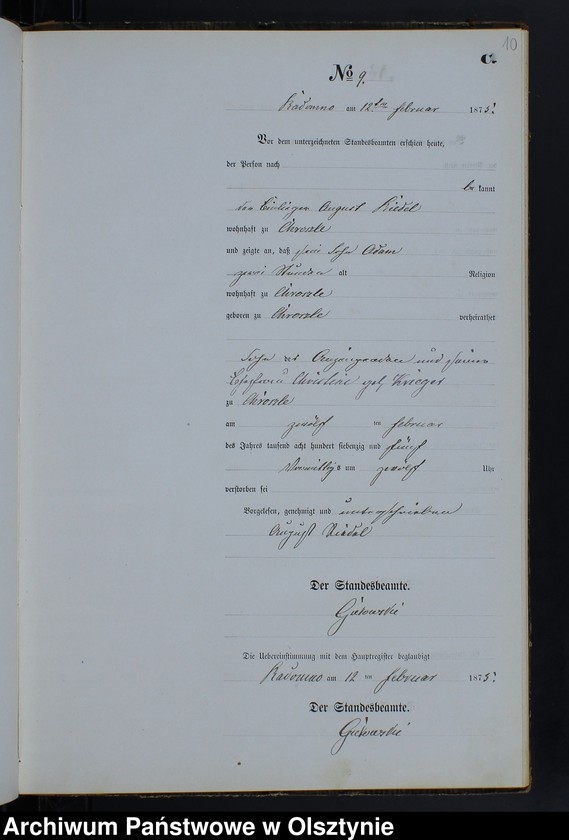 10
C.
No 9.
Radomno am 12ten Februar 1875!
Vor dem unterzeichneten Standesbeamten erschien heute,
der Person nach
be kannt
der August Riedel
wohnhaft zu Chrosle
und zeigte an, daß sein Sohn Adam
zwei Stunden alt Religion
wohnhaft zu Chrosle
geboren zu Chrosle verheirathet
Sohn des und seiner
Ehefrau Christine geb. Krieger
zu Chrosle
am zwölf ten Februar
des Jahres tausend acht hundert siebenzig und fünf
Vormittags um zwölf Uhr
verstorben sei
Vorgelesen, genehmigt und unterschrieben
August Riedel
Der Standesbeamte.
Die Uebereinstimmung mit dem Hauptregister beglaubigt
Radomno am 12 ten Februar 1875!
Der Standesbeamte.
Archiwum Państwowe w Olsztynie